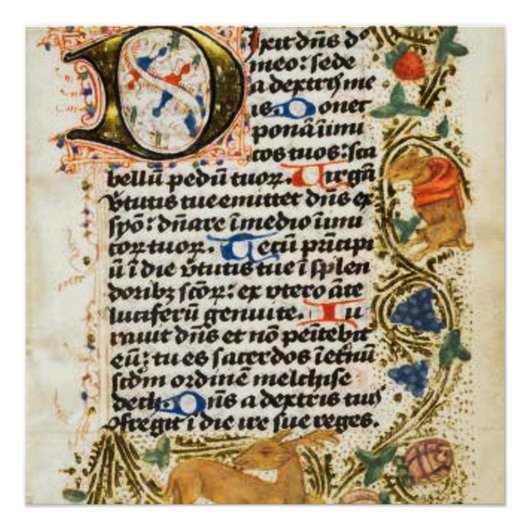 Dixit dn̄s dō
meo: sede
a dextrꝭ me
is Donec
ponā īimi
cos tuos: sca
bellū pedū tuoꝝ. Uirgā
v̄tutis tue emittet dn̄s ex
syō: dn̄are ī medio īimi
coꝝ tuoꝝ. Tecū pⁱncipi
ū ī die v̄tutis tue ī splen
doribꝫ sc̄oꝝ: ex vtero āte
luciferū genui te. Iu
rauit dn̄s et nō penitebit
eū: tu es sacerdos īet̄nū
scd̄m ordinē melchise
dech. Dn̄s a dextris tuis
ꝯfregit ī die ire sue reges.